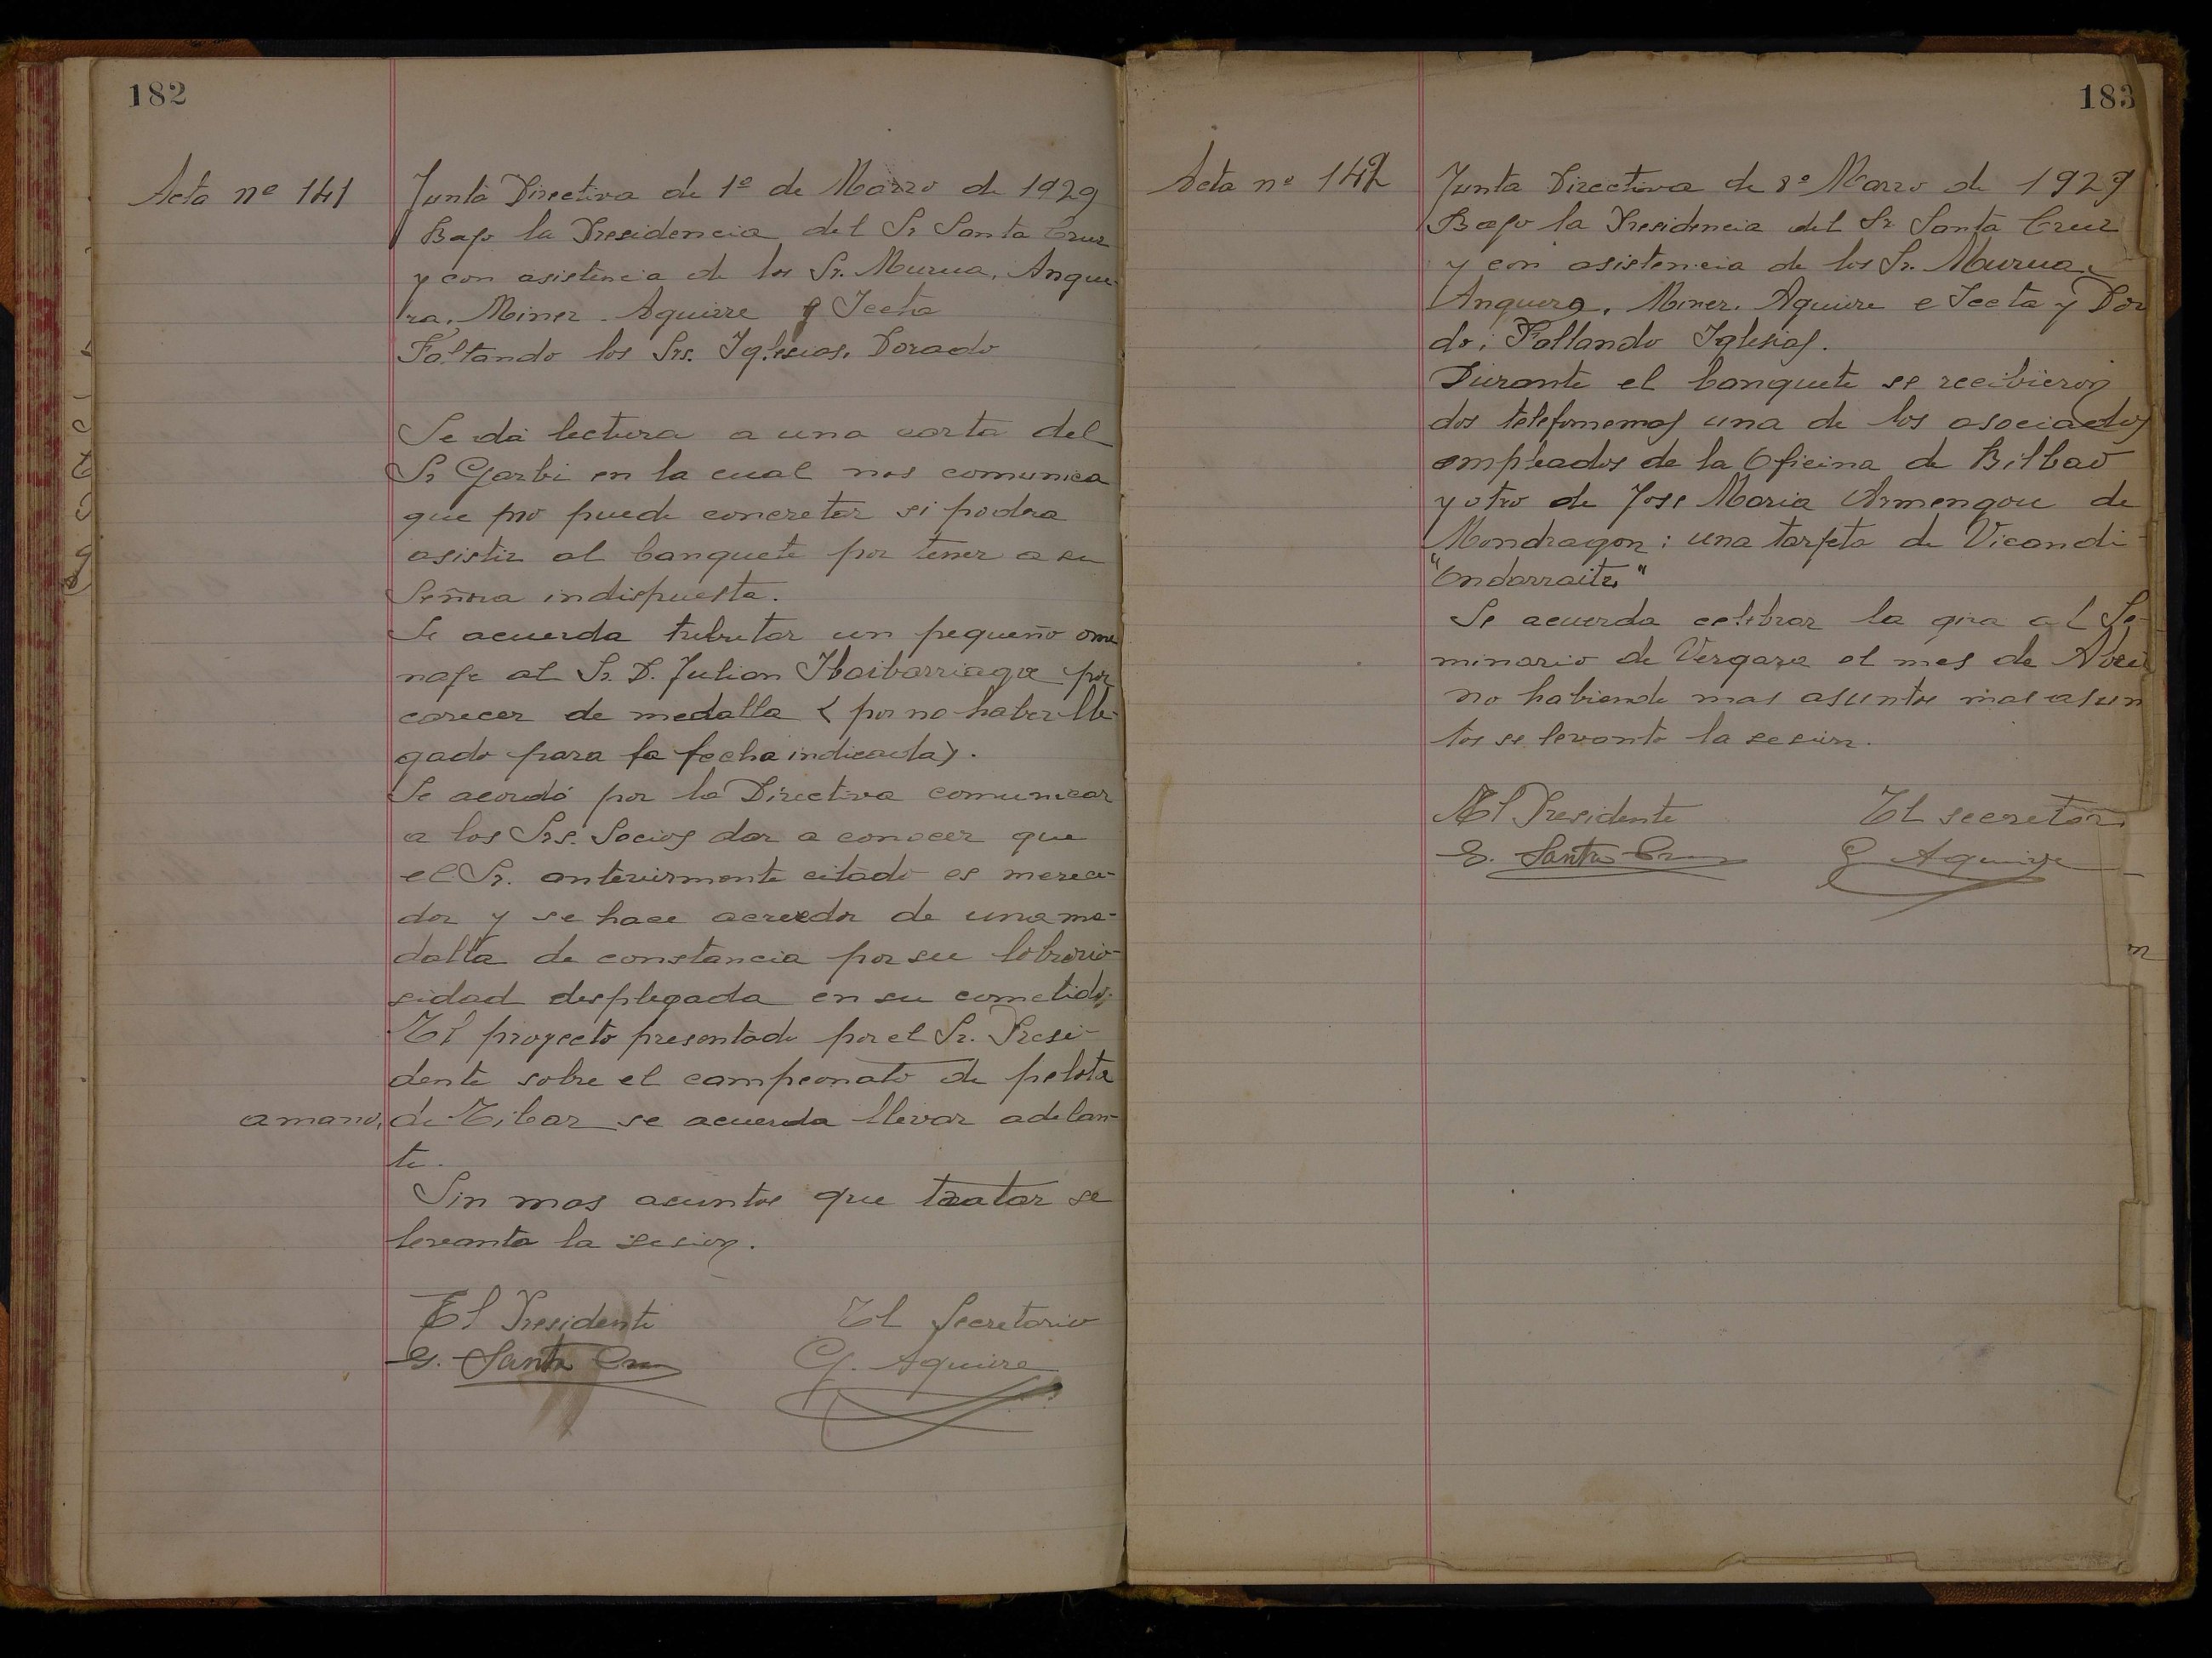 182
Acta nº 141
Junta Directiva de 1º de Marzo de 1929
Bajo la Presidencia del Sr Santa Cruz
y con asistencia de los Sr. Murua, Angue-
ra, Miner. Aguirre y Tecta
Faltando los Srs. Iglesias, Dorado
Se dá lectura a una carta del
Sr Garbi en la cual nos comunica
que no puede concretar si podra
asistir al banquete por tener a su
Señora indispuesta.
Se acuerda tributar un pequeño ome
naje al Sr. D. Julian Ibaibarriaga por
carecer de medalla ( por no haber lle-
gado para la fecha indicada).
Se acordó por la Directiva comunicar
a los Srs. Socios dar a conocer que
el Sr. anteriormente citado es merece-
dor y se hace acreedor de una me-
dalla de constancia por su laborio-
sidad desplegada en su cometido.
El proyecto presentado por el Sr. Presi-
dente sobre el campeonato de pelota
a mano, de Eibar se acuerda llevar adelan-
te.
Sin mas asuntos que tratar se
levanta la sesion.
El Presidente El Secretario
G. Santa Cruz G. Aguirre
183
Acta nº 142
Junta Directiva de 8º Marzo de 1929
Bajo la Presidencia del Sr Santa Cruz
y con asistencia de los Sr. Murua,
Anguera, Miner, Aguirre e Tecta y Dor
do; Faltando Iglesias.
Durante el banquete se recibieron
dos telefonemas una de los asociados
empleados de la Oficina de Bilbao
y otro de Jose Maria Armengou de
Mondragon; una tarjeta de Vicandi
"Ondarraitz"
Se acuerda celebrar la gira al Se-
minario de Vergara el mes de Abril
no habiendo mas asuntos mas asun
tos se levanto la sesion.
El Presidente El secretari
G. Santa Cruz G Aguirre